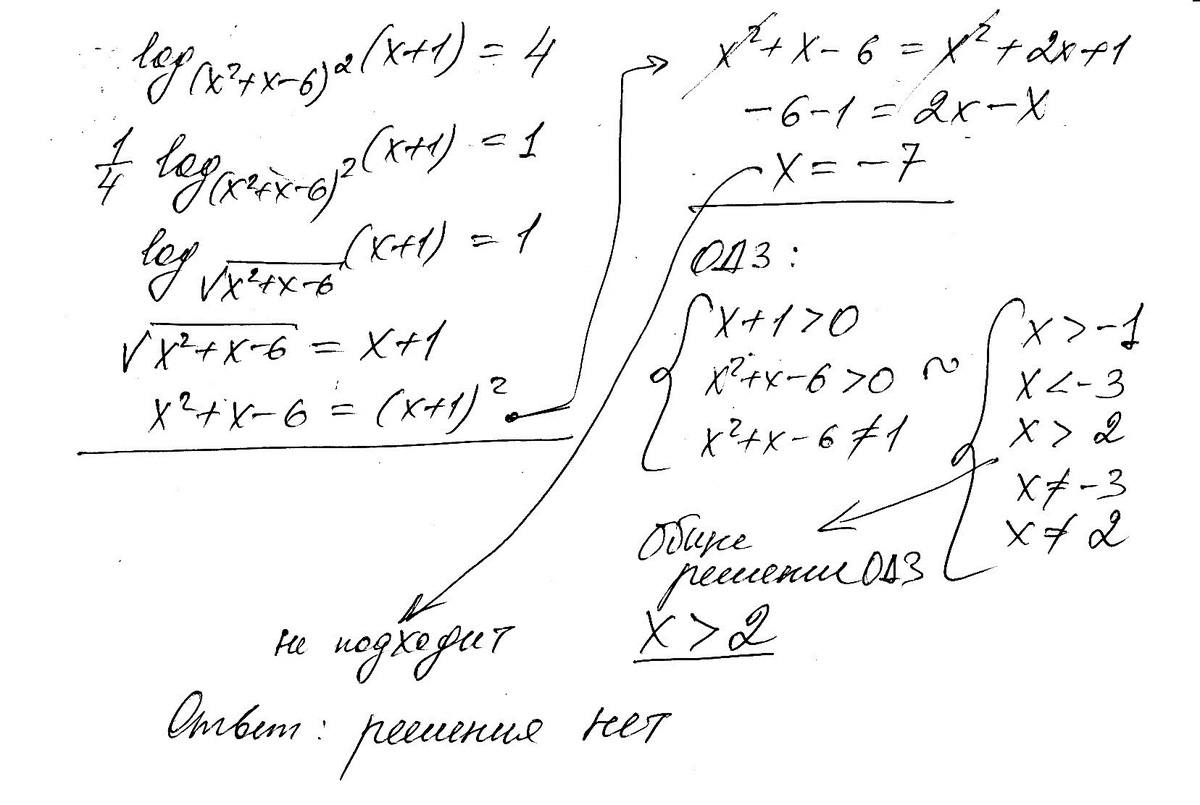 log_{(x²+x-6)²}(x+1) = 4
1/4 log_{(x²+x-6)²}(x+1) = 1
log_{√(x²+x-6)}(x+1) = 1
√(x²+x-6) = x+1
x²+x-6 = (x+1)²
x²+x-6 = x²+2x+1
-6-1 = 2x-x
x = -7
ОДЗ:
x+1>0
x²+x-6>0
x²+x-6≠1
~
x>-1
x<-3
x>2
x≠-3
x≠2
Общее
решение ОДЗ
x>2
не подходит
Ответ: решения нет